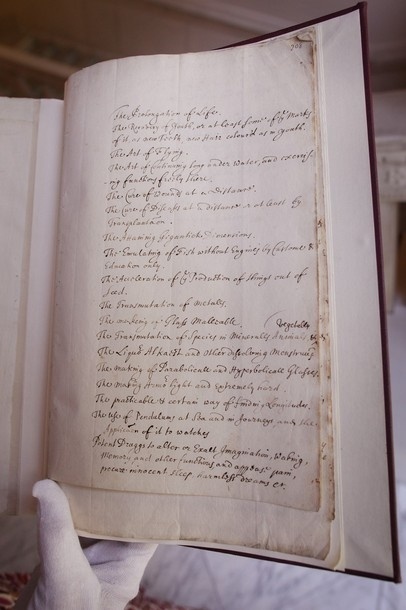 The Prolongation of Life.
The Recovery of Youth, or at least some of ye Marks
of it as new Teeth, new Hair colour'd as in youth.
The Art of Flying.
The Art of Continuing long under Water, and exercis-
ing functions freely there.
The Cure of Wounds at a Distance.
The Cure of Diseases at a distance or at least by
Transplantation.
The Attaining Gigantick Dimensions.
The Emulating of Fish without Engines by Custome &
Education only.
The Acceleration of ye Production of things out of
Seed.
The Transmutation of Metalls.
The makeing of Glass Malleable.
Vegetables
The Transmutation of Species in Mineralls, Animals &
The Liquid Alkaest and Other dissolving Menstruums
The making of Parabolicall and Hyperbolicall Glasses.
The making Armor light and extremely hard.
The practicable & certain way of finding Longitudes.
The use of Pendulums at Sea and in Journeys, and the
Application of it to watches
Potent Druggs to alter or Exalt Imagination, Waking,
Memory and other functions, and appease pain,
procure innocent sleep, harmless dreams &c.